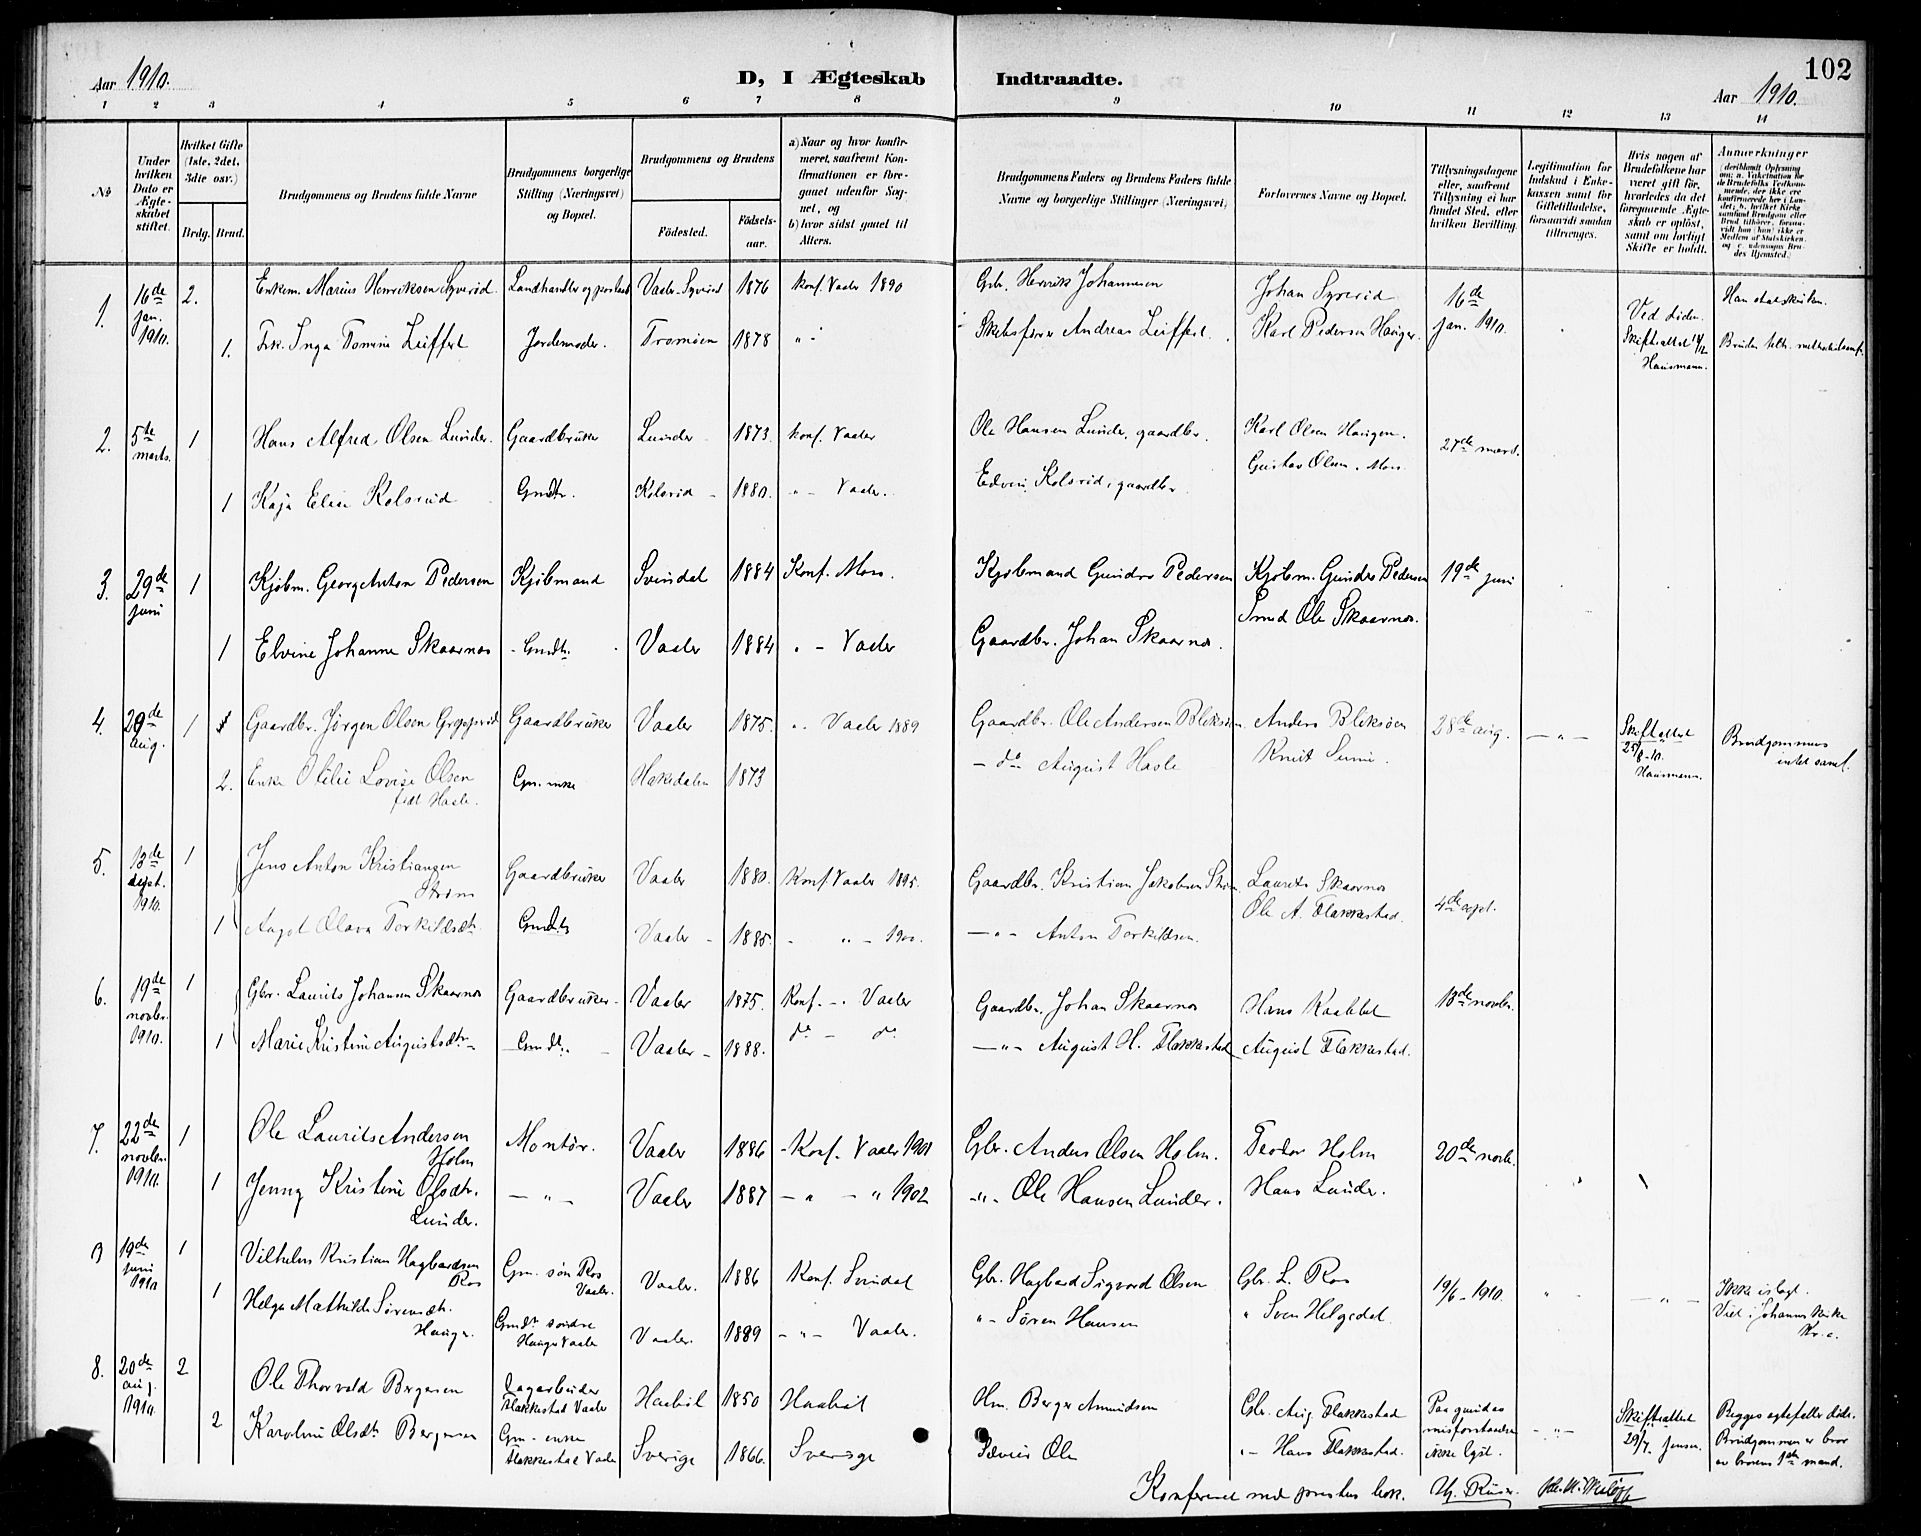 Aar 1910.
D, I Ægteskab
Indtraadte.
102
Aar 1910.
1 2 3 4 5 6 7 8 9 10 11 12 13 14
No
Under hvilken Dato er Ægteskabet stiftet.
Hvilket Gifte (1ste, 2det, 3die osv.)
Brdg.
Brud.
Brudgommens og Brudens fulde Navne
Brudgommens borgerlige Stilling (Næringsvei) og Bopæl.
Brudgommens og Brudens
Fødested.
Fødselsaar.
a) Naar og hvor konfirmeret, saafremt Konfirmationen er foregaaet udenfor Sognet, og
b) hvor sidst gaaet til Alters.
Brudgommens Faders og Brudens Faders fulde Navne og borgerlige Stillinger (Næringsvei)
Forlovernes Navne og Bopæl.
Tillysningsdagene eller, saafremt Tillysning ei har fundet Sted, efter hvilken Bevilling.
Legitimation for Indskud i Enkekassen samt for Giftetilladelse, forsaavidt saadan tiltrænges.
Hvis nogen af Brudefolkene har været gift før, hvorledes da det foregaaende Ægteskab er opløst, samt om lovligt Skifte er holdt.
Anmerkninger
1. 16de jan. 1910. 2. Enkem. Marius Henriksen Syverid. Landhandler og Vaaler-Syverid 1876 konf. Vaaler 1890 Gbr. Henrik Johannesen Johan Syverid 16de jan. 1910. Ved døden. Skifteattest Hausmann.
1. Frk. Inga Tomine Leiffert Jordemoder. Tromøen 1878 Andreas Leiffert. Karl Pedersen Hauger.
2. 5te marts. 1 Hans Alfred Olsen Lunder. Gaardbruker Lunder 1873. konf. Vaaler Ole Hansen Lunder, gaardbr. Karl Olsen Haugen. 27de
1 Kaja Elise Kolsrud Gmdtr. Kolsrud - 1880. " - Vaaler. Edvin Kolsrud, gaardbr. Gustav Olsen, Moss
3. 29de juni 1 Kjøbm. Georg Anton Pedersen Kjøbmand Svindal 1884 Konf. Moss. Kjøbmand Gunder Pedersen Kjøbm. Gunder Pedersen 19de juni
1 Elvine Johanne Skaarnes - Gmdtr. Vaaler 1884 " - Vaaler Gaardbr. Johan Skaarnes. Smed Ole Skaarnes.
4. 29de aug. 1 Gaardbr. Jørgen Olsen Gaardbruker Vaaler 1875. " Vaaler 1889 Gaardbr. Ole Andersen Bleksøen Anders Bleksøen 28de aug. - " - Skifteattest 25/8-10. Hausmann. Brudgommens
2. Enke Otilie Lovise Olsen født Hasle. Gm. enke Hakedalen 1873 - do August Hasle Knut
5. 13de sept. 1910. 1 Jens Anton Kristiansen Strøm Gaardbruker Vaaler 1880. Konf. Vaaler 1895. Gaardbr. Kristian Jakobsen Laurits Skaarnes 4de sept.
1 Aagot Olava Torkildsdtr. Gmdtr. Vaaler - 1885. - " - 1900. - " - Anton Torkildsen. Ole A. Flakkestad.
6. 19de novbr. 1910. 1 Gbr. Laurits Johansen Skaarnes Gaardbruker - Vaaler 1875. Konf. - Vaaler Gaardbr. Johan Skaarnes Hans Kaabbel 13de novbr.
1 Marie Kristine Augustsdtr. - Gmdtr. - Vaaler - 1888. do - do - " - August H. Flakkestad August Flakkestad.
7. 22de novbr. 1910. 1 Ole Laurits Andersen Holm Montør. Vaaler 1886 - Konf. Vaaler 1901 Gbr. Anders Olsen Holm. Teodor Holm 20de novb.
1 Jenny Kristine Olsdtr. Lunder. - " - Vaaler 1887 - " - " 1902 - " - Ole Hansen Lunder. Hans Lunder.
3 19de juni 1910 1 Vilhelm Kristian Hagbardsen Ros Gm. søn Ros Vaaler. Vaaler. 1886 Konf. Svindal Gbr. Hagbard Sigvard Olsen Gbr. L. Ros 19/6 - 1910. " - " - Ikke Viet i Johannes kirke Kr.a.
1 Helga Mathilde Sørensdtr. Hauger. Gmdtr søndre Hauger Vaaler Vaaler. 1889 - " - Vaaler. " - Søren Hansen " Sven Helgedal
8. 20de aug. 1910. 2 Ole Thorvald Bergersen Dagarbeider Flakkestad Vaaler Haabøl 1850 Haabøl Hm. Berger Amundsen Gbr. Aug. Flakkestad Paa grund av misforstaaelse ikke lyst. - " - Skifteattest 29/7. Jensen. Begges egtefeller døde. Brudgommen er bror av brudens 1ste mand.
2 Karoline Olsdtr Bergersen Gm. enke Flakkestad Vaaler Sverige 1866. Sverige Ole " - Hans Flakkestad.
Konfereret med prestens bok.